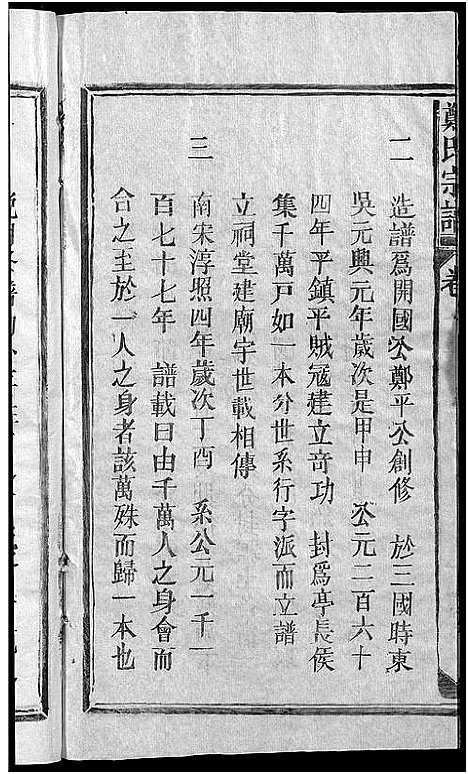 鄭氏宗譜
卷
二 造譜爲開國公鄭平公創修 於三國時東
吳元興元年歲次是甲申 公元二百六十
四年平鎮平賊寇建立奇功 封爲亭長侯
集千萬戶如一本分世系行字派而立譜
立祠堂建廟宇世載相傳
三 南宋淳照四年歲次丁酉 系公元一千一
百七十七年 譜載曰由千萬人之身會而
合之至於一人之身者該萬殊而歸一本也